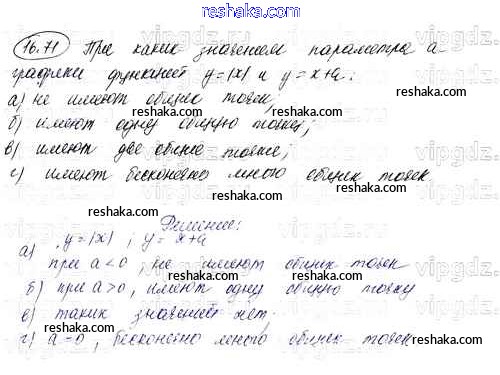 16.71 При каких значениях параметра a
графики функций y=|x| и y=x+a:
а) не имеют общих точек;
б) имеют одну общую точку;
в) имеют две общие точки;
г) имеют бесконечно много общих точек
Решение:
а) y=|x| ; y=x+a
при a<0, не имеют общих точек
б) при a>0, имеют одну общую точку
в) таких значений нет.
г) a=0, бесконечно много общих точек
reshaka.com
reshaka.com
reshaka.com
reshaka.com
reshaka.com
reshaka.com
reshaka.com
reshaka.com